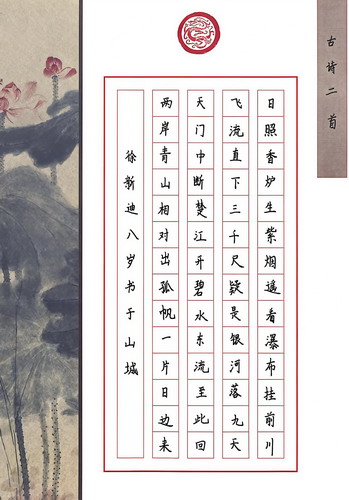 古诗二首
日照香炉生紫烟遥看瀑布挂前川
飞流直下三千尺疑是银河落九天
天门中断楚江开碧水东流至此回
两岸青山相对出孤帆一片日边来
徐新迪八岁书于山城